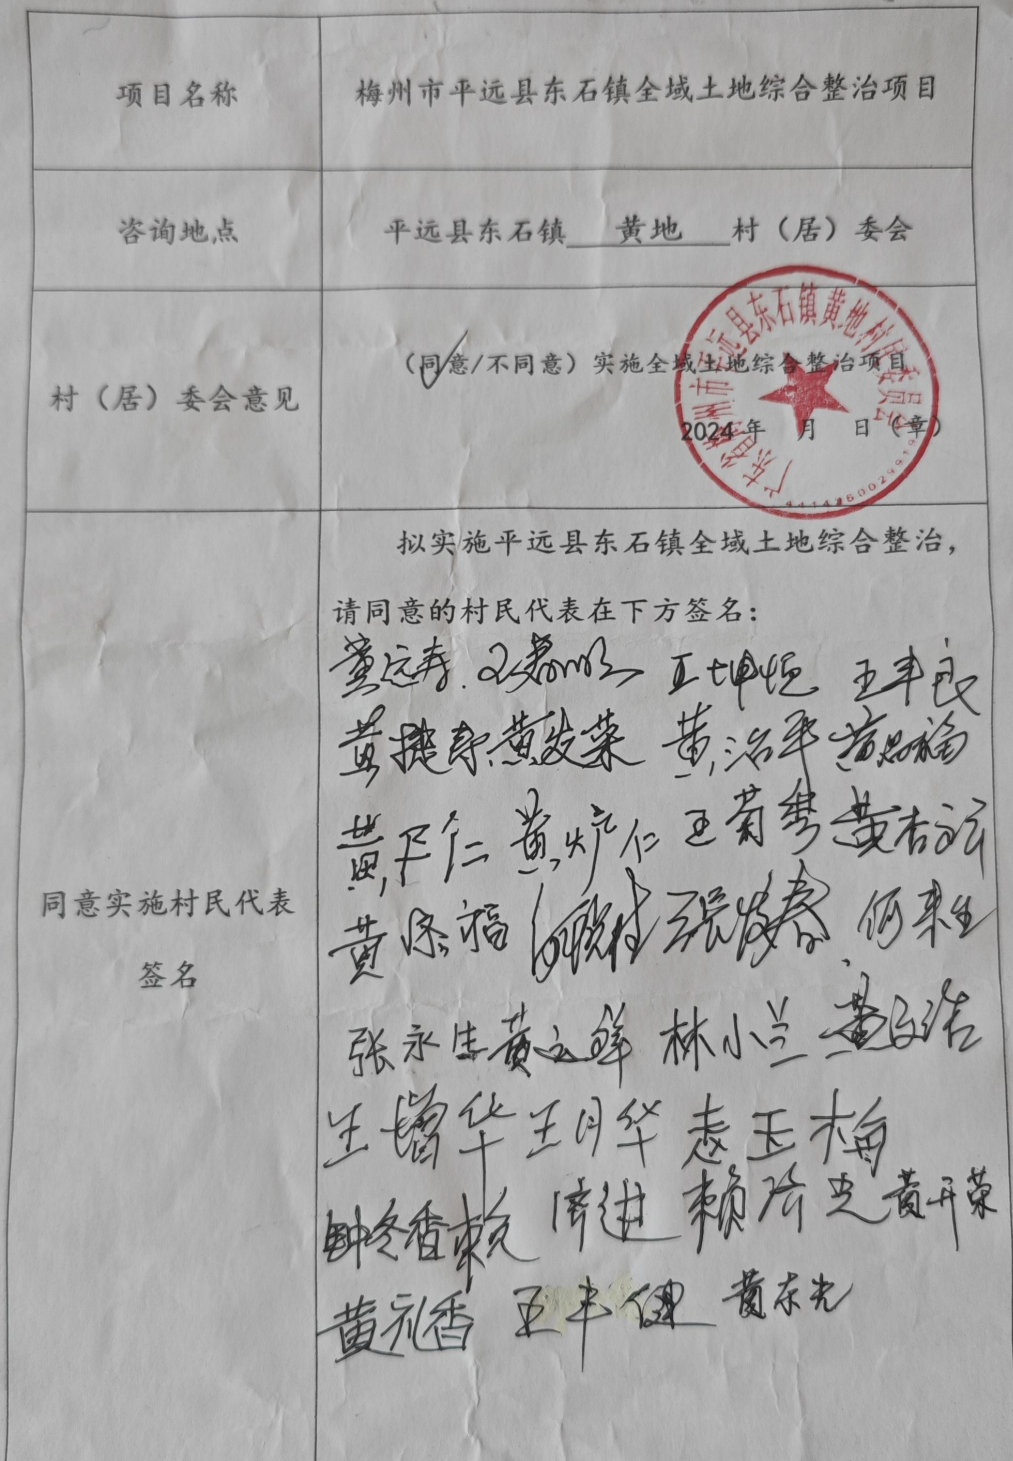 项目名称
梅州市平远县东石镇全域土地综合整治项目
咨询地点
平远县东石镇 黄地 村（居）委会
村（居）委会意见
（同意/不同意）实施全域土地综合整治项目
2024年 月 日（章）
广东省梅州市平远县东石镇黄地村民委员会
同意实施村民代表
签名
拟实施平远县东石镇全域土地综合整治，
请同意的村民代表在下方签名：
黄远寿 王坤恒 王丰良
黄捷寿 黄发荣 黄治平 黄思福
黄广仁 王菊秀 黄杏云
黄添福 张发春 何来生
张永生 黄文辉 林小兰 黄文浩
王增华 王月华 袁玉梅
钟冬香 赖济进 赖济光 黄开荣
黄元香 王丰健 黄东光